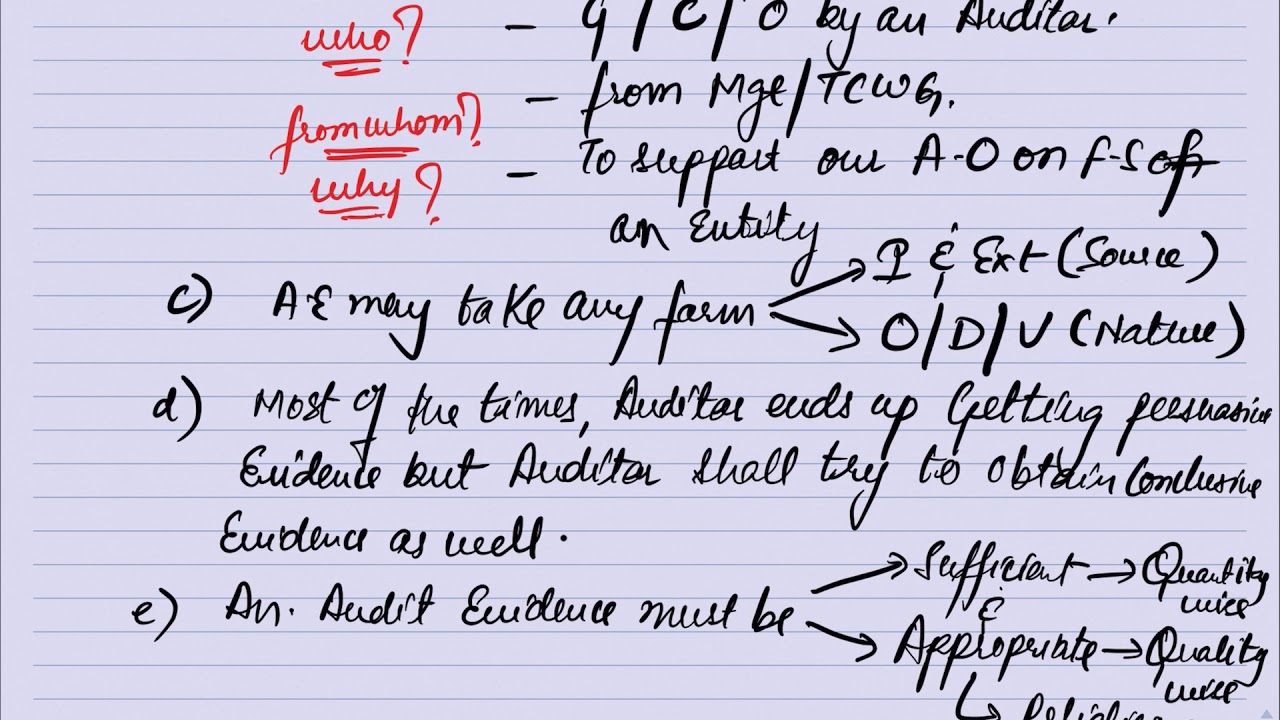 who? - G/C/O by an Auditor.
from whom? - from Mgt/TCWG.
why? - To support our A-O on F-S of
an Entity
c) A E may take any form → I & Ext (Source)
→ O/D/V (Nature)
d) Most of the times, Auditor ends up Getting persuasive
Evidence but Auditor shall try to Obtain Conclusive
Evidence as well.
e) An. Audit Evidence must be → Sufficient → Quantity
wise
&
→ Appropriate → Quality
wise